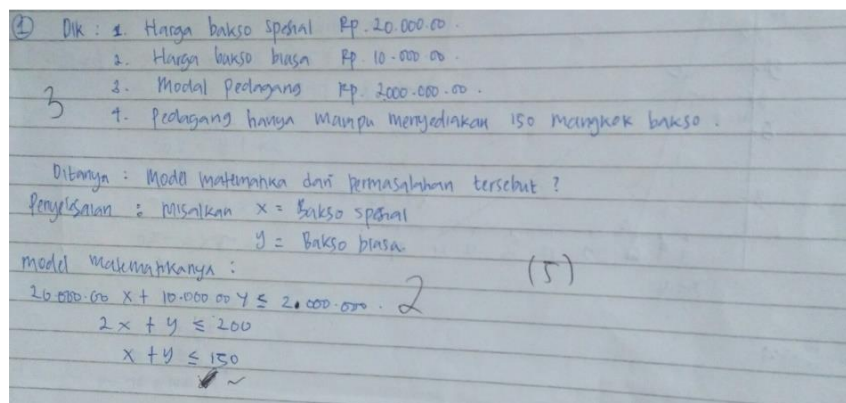 ① Dik : 1. Harga bakso spesial Rp. 20.000.00.
2. Harga bakso biasa Rp. 10.000.00.
3. Modal Pedagang Rp. 2000.000.00.
3
4. Pedagang hanya mampu menyediakan 150 mangkok bakso.
Ditanya : Model matematika dari Permasalahan tersebut ?
Penyelesaian : Misalkan x = Bakso spesial
y = Bakso biasa.
Model Matematikanya :
(5)
20.000.00 x + 10.000 00 y ≤ 2.000.000.
2
2x + y ≤ 200
x + y ≤ 150